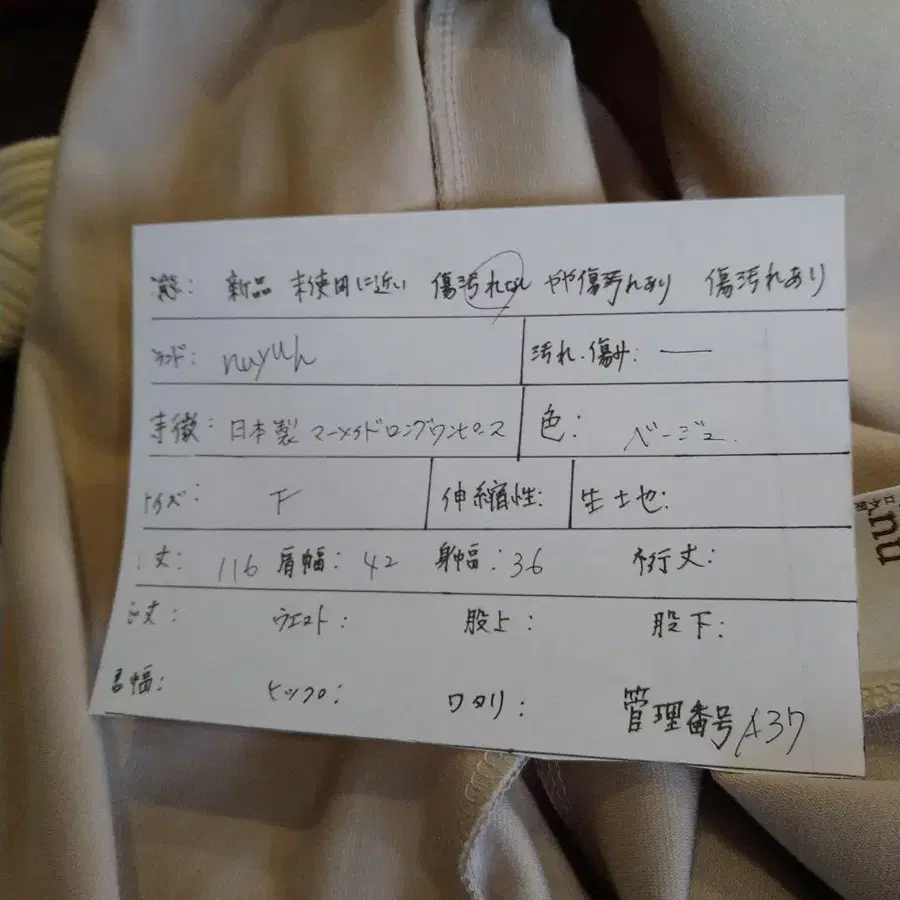 態: 新品 未使用に近い 傷汚れなし やや傷汚れあり 傷汚れあり
ランド: nuyuh 汚れ・傷み: ー
特徴: 日本製 マーメイドロングワンピース 色: ベージュ
サイズ: F 伸縮性: 生地:
丈: 116 肩幅: 42 身幅: 36 裄丈:
丈: ウエスト: 股上: 股下:
幅: ヒップ: ワタリ: 管理番号 A37
nu